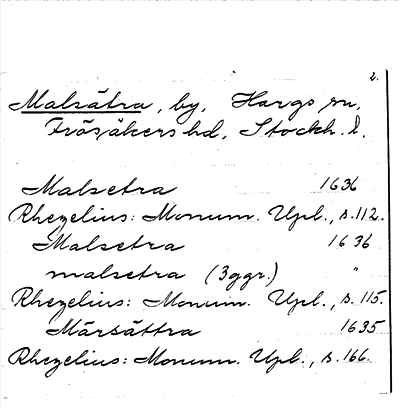 2.
Malsätra, by, Hargs sn,
Frösåkers hd, Stockh. l.
Malsetra 1636
Rhezelius: Monum. Upl., s. 112.
Malsetra 1636
malsetra (3ggr.) "
Rhezelius: Monum. Upl., s. 115.
Mårsåttra 1635
Rhezelius: Monum. Upl., s. 166.